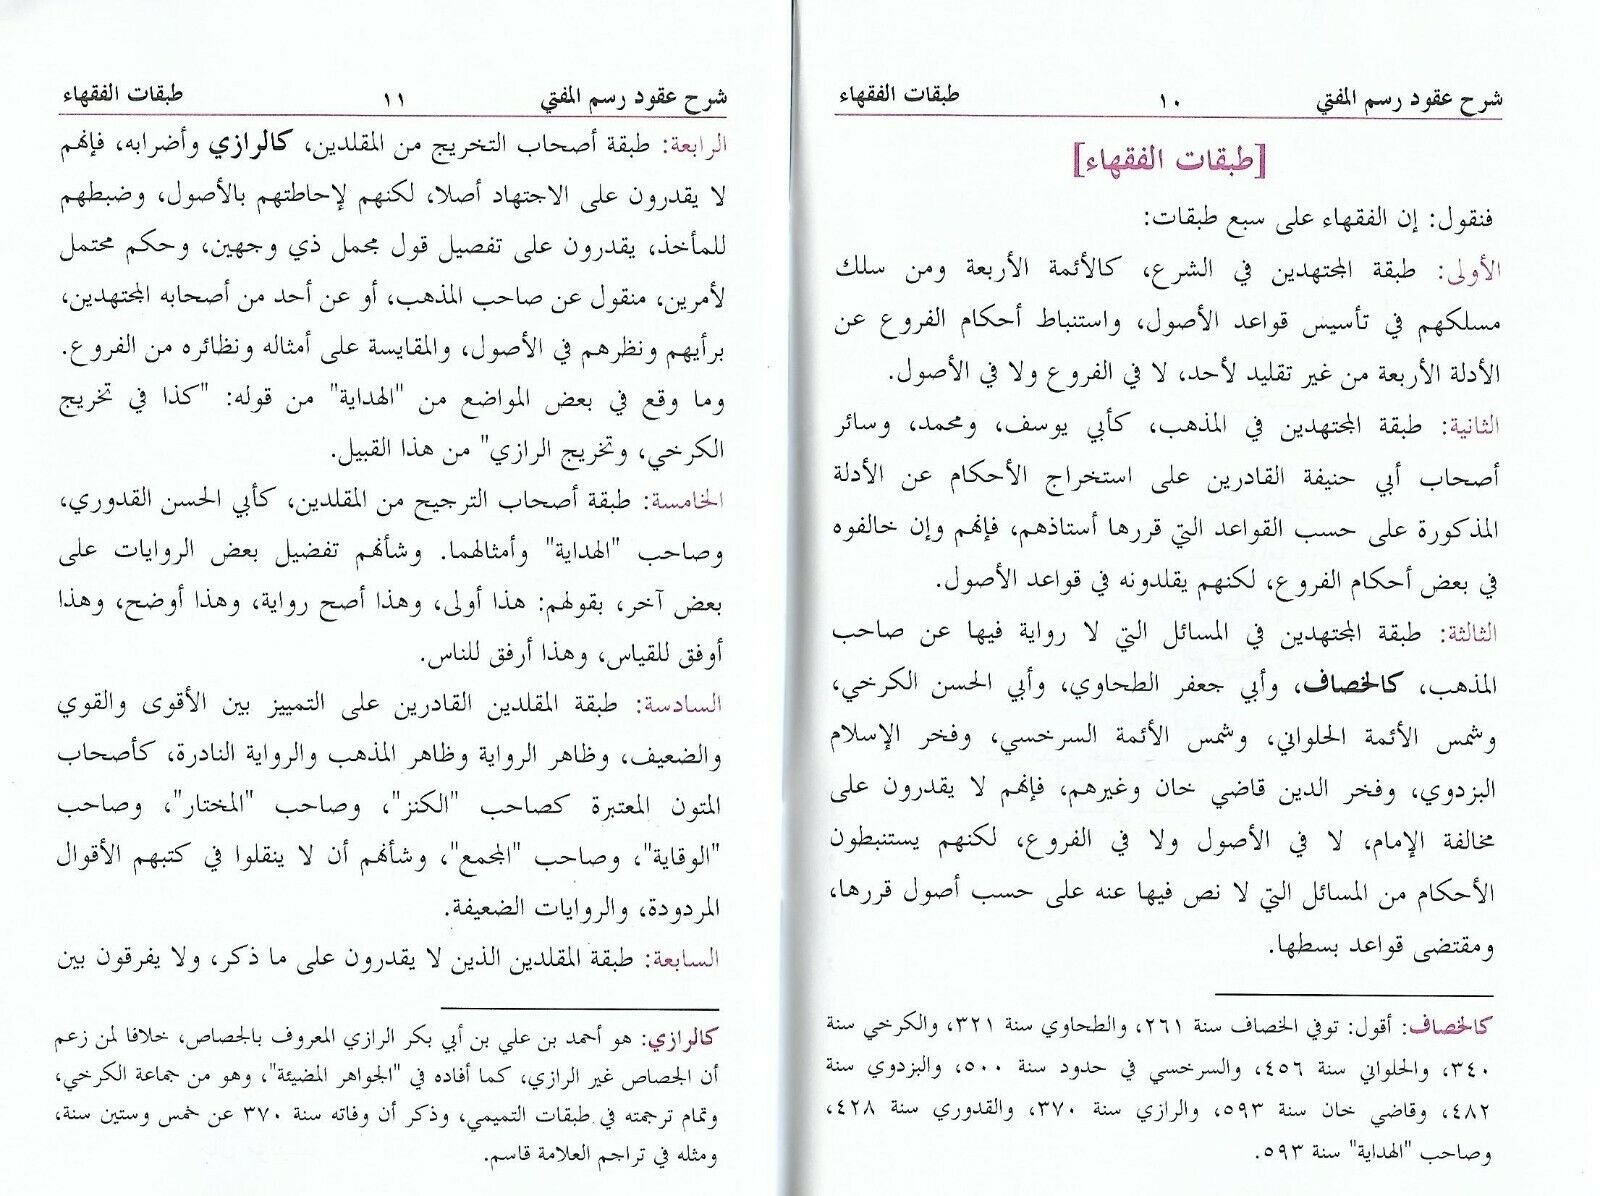 شرح عقود رسم المفتي ١٠ طبقات الفقهاء
[طبقات الفقهاء]
فنقول: إن الفقهاء على سبع طبقات:
الأولى: طبقة المجتهدين في الشرع، كالأئمة الأربعة ومن سلك
مسلكهم في تأسيس قواعد الأصول، واستنباط أحكام الفروع عن
الأدلة الأربعة من غير تقليد لأحد، لا في الفروع ولا في الأصول.
الثانية: طبقة المجتهدين في المذهب، كأبي يوسف، ومحمد، وسائر
أصحاب أبي حنيفة القادرين على استخراج الأحكام عن الأدلة
المذكورة على حسب القواعد التي قررها أستاذهم، فإنهم وإن خالفوه
في بعض أحكام الفروع، لكنهم يقلدونه في قواعد الأصول.
الثالثة: طبقة المجتهدين في المسائل التي لا رواية فيها عن صاحب
المذهب، كالخصاف، وأبي جعفر الطحاوي، وأبي الحسن الكرخي،
وشمس الأئمة الحلواني، وشمس الأئمة السرخسي، وفخر الإسلام
البزدوي، وفخر الدين قاضي خان وغيرهم، فإنهم لا يقدرون على
مخالفة الإمام، لا في الأصول ولا في الفروع، لكنهم يستنبطون
الأحكام من المسائل التي لا نص فيها عنه على حسب أصول قررها،
ومقتضى قواعد بسطها.
كالخصاف: أقول: توفي الخصاف سنة ٢٦١، والطحاوي سنة ٣٢١، والكرخي سنة
٣٤٠، والحلواني سنة ٤٥٦، والسرخسي في حدود سنة ٥٠٠، والبزدوي سنة
٤٨٢، وقاضي خان سنة ٥٩٣، والرازي سنة ٣٧٠، والقدوري سنة ٤٢٨،
وصاحب "الهداية" سنة ٥٩٣.
شرح عقود رسم المفتي ١١ طبقات الفقهاء
الرابعة: طبقة أصحاب التخريج من المقلدين، كالرازي وأضرابه، فإنهم
لا يقدرون على الاجتهاد أصلا، لكنهم لإحاطتهم بالأصول، وضبطهم
للمأخذ، يقدرون على تفصيل قول مجمل ذي وجهين، وحكم محتمل
لأمرين، منقول عن صاحب المذهب، أو عن أحد من أصحابه المجتهدين،
برأيهم ونظرهم في الأصول، والمقايسة على أمثاله ونظائره من الفروع.
وما وقع في بعض المواضع من "الهداية" من قوله: "كذا في تخريج
الكرخي، وتخريج الرازي" من هذا القبيل.
الخامسة: طبقة أصحاب الترجيح من المقلدين، كأبي الحسن القدوري،
وصاحب "الهداية" وأمثالهما. وشأنهم تفضيل بعض الروايات على
بعض آخر، بقولهم: هذا أولى، وهذا أصح رواية، وهذا أوضح، وهذا
أوفق للقياس، وهذا أرفق للناس.
السادسة: طبقة المقلدين القادرين على التمييز بين الأقوى والقوي
والضعيف، وظاهر الرواية وظاهر المذهب والرواية النادرة، كأصحاب
المتون المعتبرة كصاحب "الكنز"، وصاحب "المختار"، وصاحب
"الوقاية"، وصاحب "المجمع"، وشأنهم أن لا ينقلوا في كتبهم الأقوال
المردودة، والروايات الضعيفة.
السابعة: طبقة المقلدين الذين لا يقدرون على ما ذكر، ولا يفرقون بين
كالرازي: هو أحمد بن علي بن أبي بكر الرازي المعروف بالجصاص، خلافا لمن زعم
أن الجصاص غير الرازي، كما أفاده في "الجواهر المضيئة"، وهو من جماعة الكرخي،
وتمام ترجمته في طبقات التميمي، وذكر أن وفاته سنة ٣٧٠ عن خمس وستين سنة،
ومثله في تراجم العلامة قاسم.